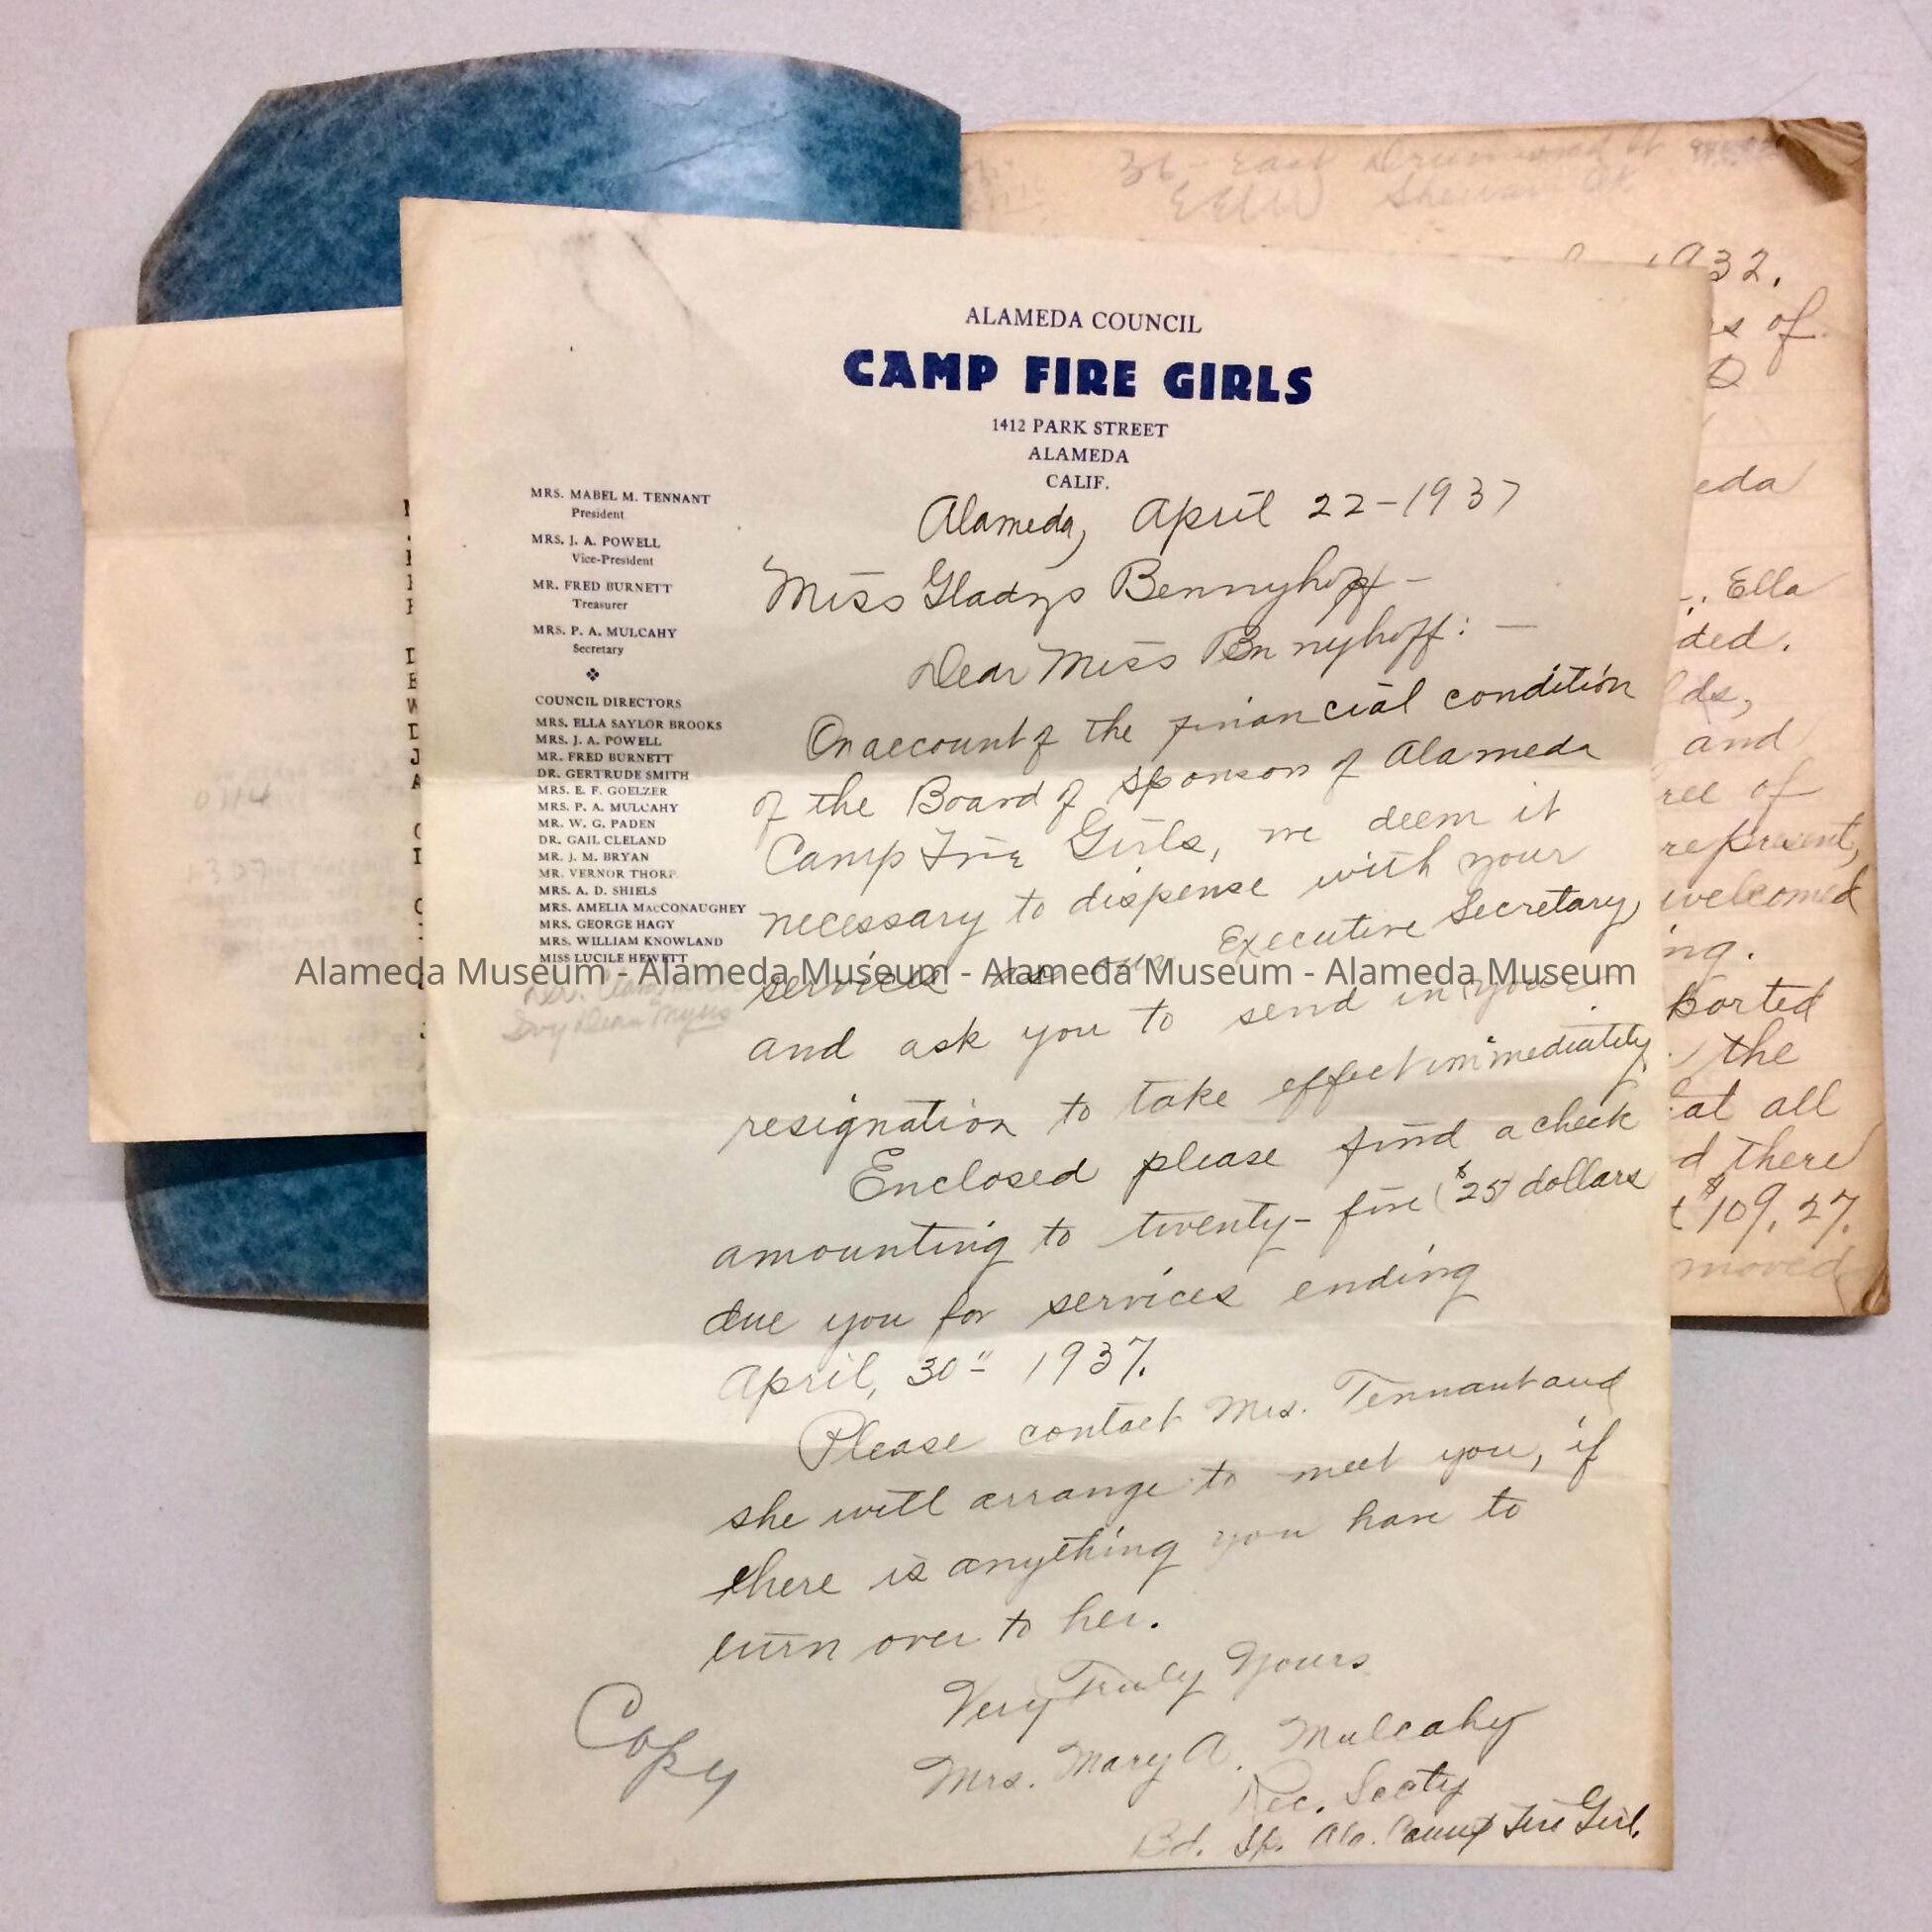 ALAMEDA COUNCIL
CAMP FIRE GIRLS
1412 PARK STREET
ALAMEDA
CALIF.
MRS. MABEL M. TENNANT
President
MRS. J. A. POWELL
Vice-President
MR. FRED BURNETT
Treasurer
MRS. P. A. MULCAHY
Secretary
COUNCIL DIRECTORS
MRS. ELLA SAYLOR BROOKS
MRS. J. A. POWELL
MR. FRED BURNETT
DR. GERTRUDE SMITH
MRS. E. F. GOELZER
MRS. P. A. MULCAHY
MR. W. G. PADEN
DR. GAIL CLELAND
MR. J. M. BRYAN
MR. VERNOR THORP
MRS. A. D. SHIELS
MRS. AMELIA MACCONAUGHEY
MRS. GEORGE HAGY
MRS. WILLIAM KNOWLAND
MISS LUCILE HEWETT
Alameda, April 22-1937
Miss Gladys Bennyhoff-
Dear Miss Bennyhoff: —
On account of the financial condition
of the Board of Sponsors of Alameda
Camp Fire Girls, we deem it
necessary to dispense with your
services as our Executive Secretary,
and ask you to send in your
resignation to take effect immediately.
Enclosed please find a check
amounting to twenty-five ($25) dollars
due you for services ending
April, 30" 1937.
Please contact Mrs. Tennant and
she will arrange to meet you, if
there is anything you have to
turn over to her.
Very Truly Yours
Mrs. Mary A. Mulcahy
Rec. Secty
Bd. Sp. Ala. Camp Fire Girl.
Copy
Alameda Museum - Alameda Museum - Alameda Museum - Alameda Museum
36 - East Drummond
1932.
s of
eda
Ella
ded.
lds,
and
ree of
represent,
welcomed
ing.
ported
the
at all
d there
$109.27.
moved